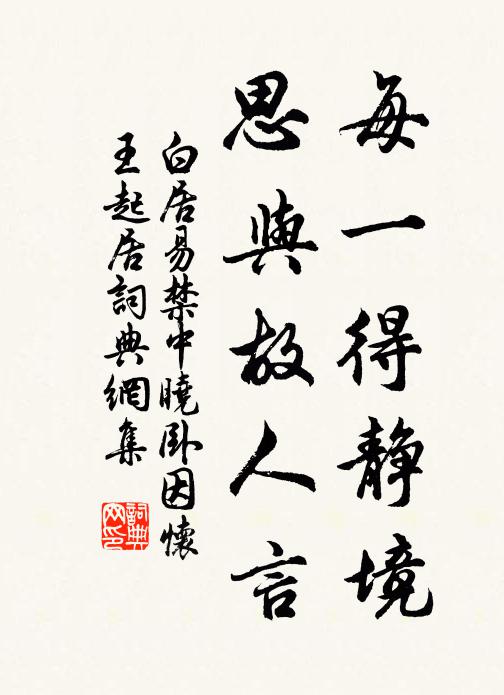 每一得静境
思與故人言
白居易禁中曉卧因懷
王起居詞典網集
詞典
网印